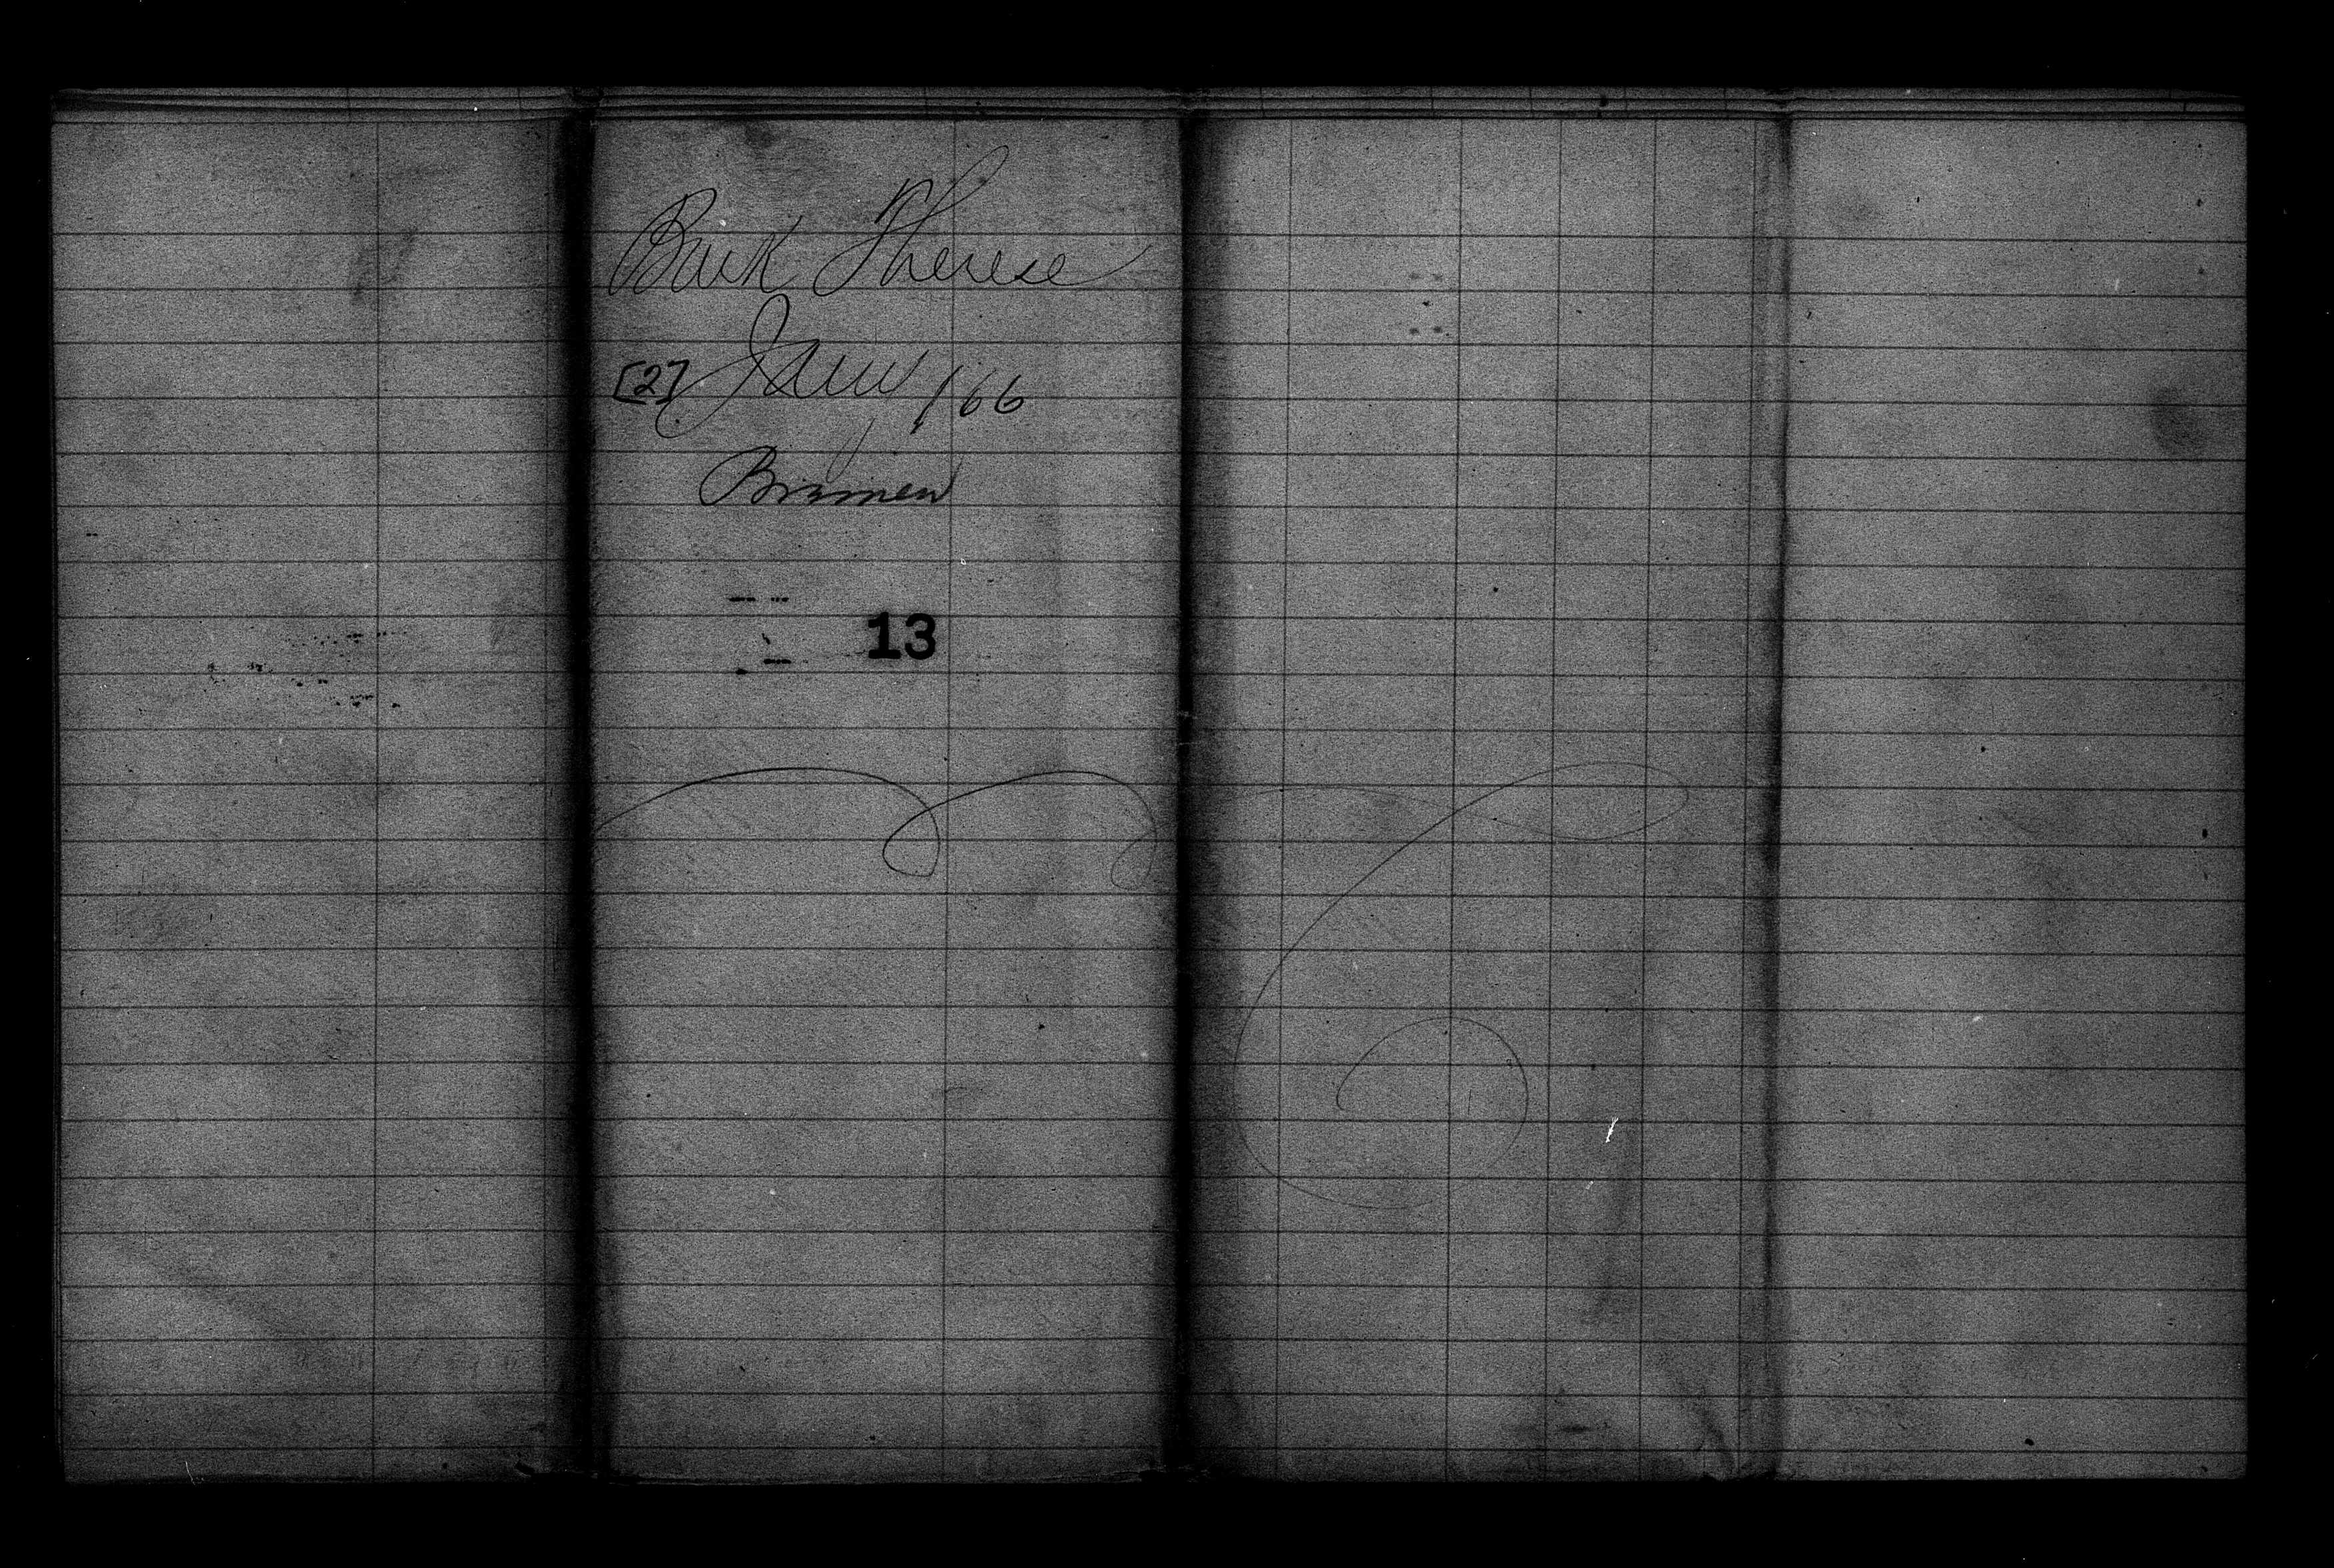 Bark Therese
[2] Jany /66
Bremen
13